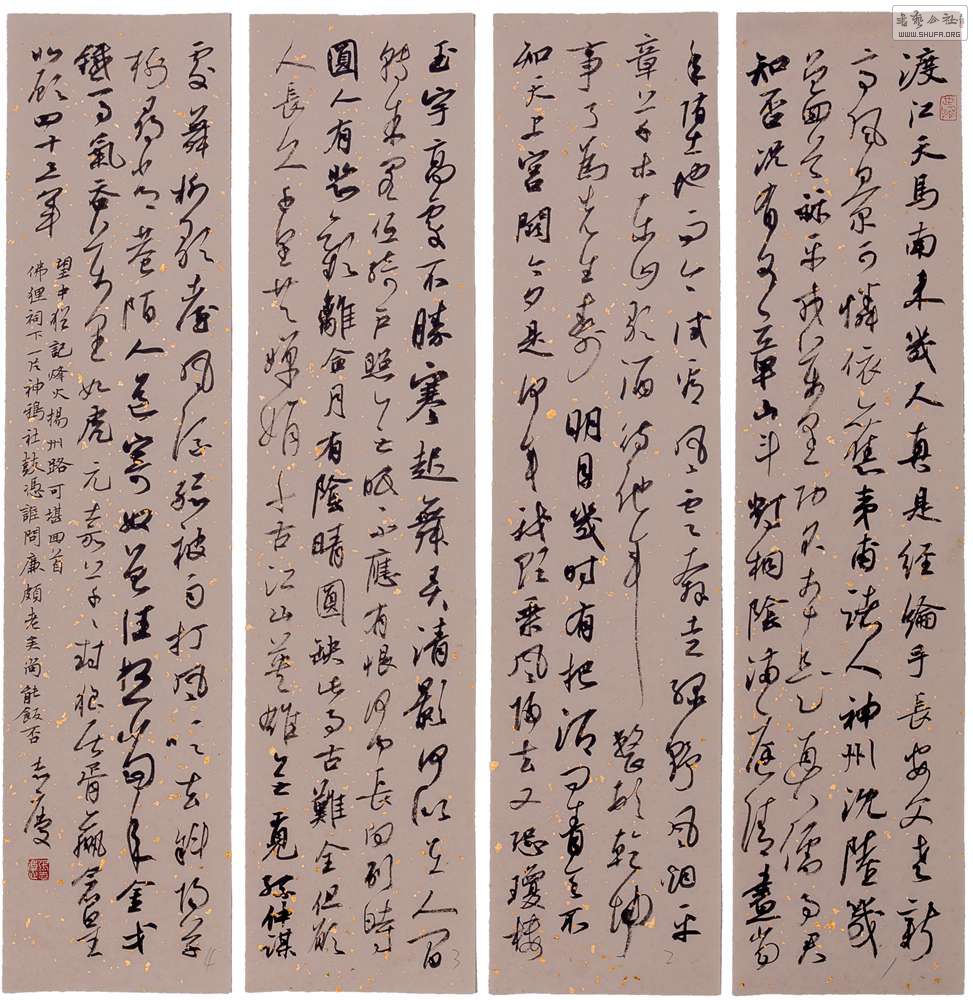 渡江天馬南来幾人真是經綸手長安父老新
亭風景可憐依舊夷甫諸人神州沈陸幾
曾回首算平戎萬里功名本是真儒事君
知否況有文章山斗對桐陰滿庭清晝當
年墮地而今試看風雲奔走綠野風烟平
草木東山歌酒待他年整頓乾坤
事了為先生壽 明月幾時有把酒問青天不
知天上宮闕今夕是何年我欲乘風歸去又恐瓊樓
玉宇高處不勝寒起舞弄清影何似在人間
轉朱閣低綺戶照無眠不應有恨何事長向別時
圓人有悲歡離合月有陰晴圓缺此事古難全但願
人長久千里共嬋娟 千古江山英雄無覓孫仲謀
處舞榭歌臺風流總被雨打風吹去斜陽草
樹尋常巷陌人道寄奴曾住想當年金戈
鐵馬氣吞萬里如虎元嘉草草封狼居胥贏倉皇
北顧四十三年
望中猶記烽火揚州路可堪回首
佛狸祠下一片神鴉社鼓憑誰問廉頗老矣尚能飯否 志慶
WWW.SHUFA.ORG